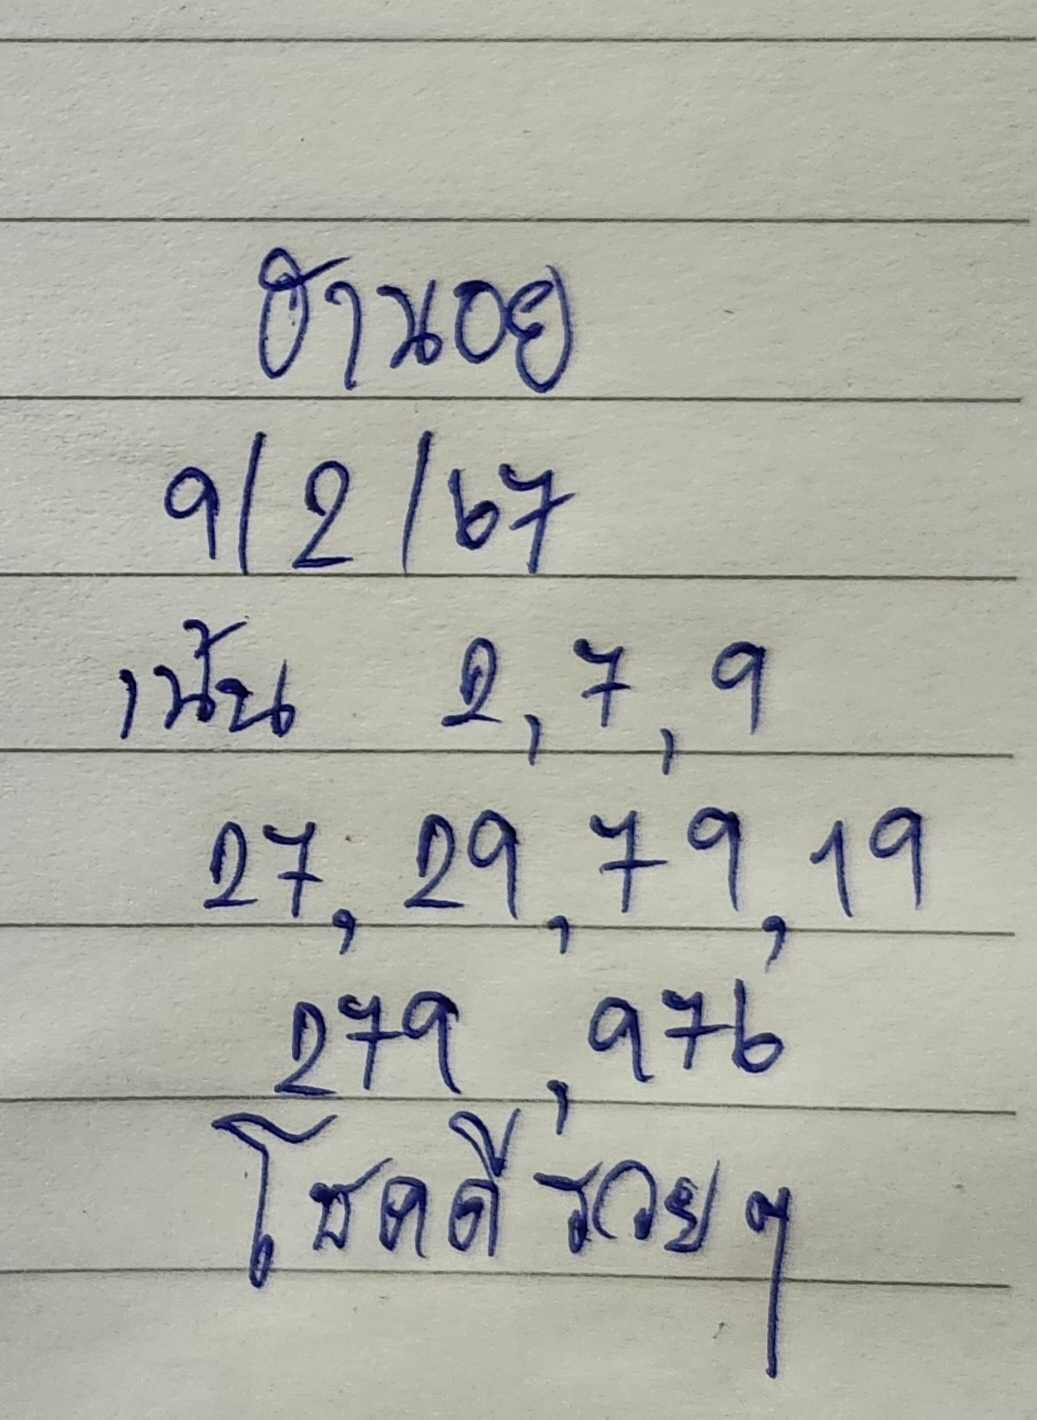 ฮานอย
9/2/67
เน้น 2,7,9
27,29,79,19
279,976
โชคดี รวยๆ